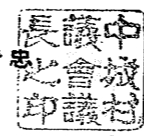 中城村
議會議
長之印
忠